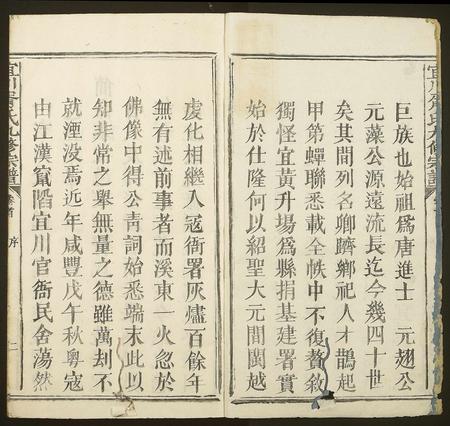 宜川胥氏九修宗譜
巨族也始祖爲唐進士 元翅公
元藻公源遠流長迄今幾四十世
矣其間列名卿躋鄉祀人才鵲起
甲第蟬聯悉載全帙中不復贅敘
獨怪宜黃升場爲縣捐基建署實
始於仕隆何以紹聖大元間閩越
虔化相繼入寇衙署灰燼百餘年
無有述前事者而溪東一火忽於
佛像中得公靑詞始悉端末此以
知非常之舉無量之德雖萬刦不
就湮没焉近年咸豐戊午秋粵寇
由江漢竄𨺗宜川官衙民舍蕩然
宜川胥氏九修宗譜 卷首 序 二